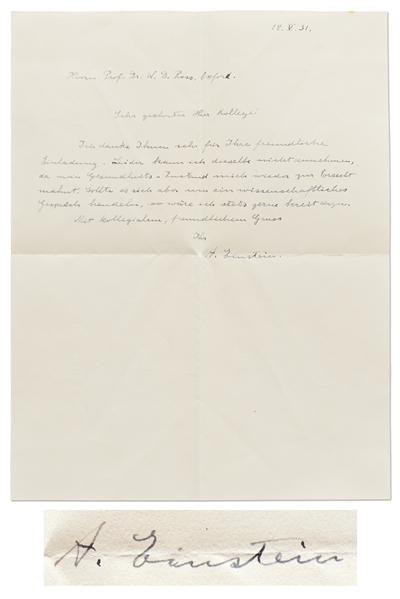 18. V. 31.
Herrn Prof. Dr. W. D. Ross. Oxford.
Sehr geehrter Herr Kollege!
Ich danke Ihnen sehr für Ihre freundliche
Einladung. Leider kann ich dieselbe nicht annehmen,
da mein Gesundheits-Zustand mich wieder zur Vorsicht
mahnt. Sollte es sich aber um ein wissenschaftliches
Gespräch handeln, so wäre ich stets gerne bereit dazu.
Mit kollegialem, freundlichem Gruss
Ihr
A. Einstein.
A. Einstein